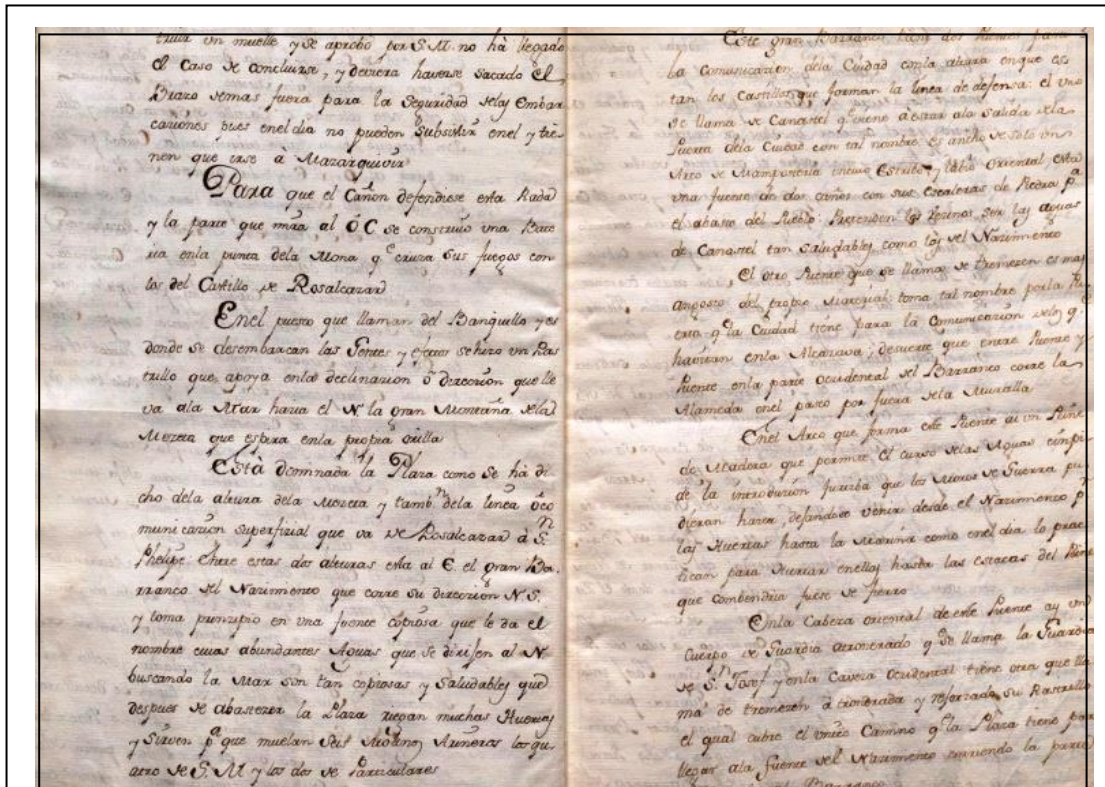 truir un muelle y se aprobó por S.M. no hà llegado
el Caso de concluirse, y deviera haverse sacado el
Brazo demas fuera para la Seguridad delas Embar
caciones pues enel dia no pueden Subsistir enel y tie-
nen que irse à Mazarquivir
Para que el Cañon defendiese esta Rada
y la parte que mira al ÓC se construió una Bate
ria enla punta dela Mona q.e cruza sus fuegos con
los del Castillo de Rosalcazar
Enel puesto que llaman del Banquillo y es
donde se desembarcan las Gentes y efectos se hizo un Ras
trillo que apoya enla declinacion ò direccion que lle
va ala Mar hacia el N. la gran Montaña dela
Mezeta que espira enla propria orilla
Està domnada la Plaza como se hà di
cho dela altura dela Mezeta y tamb.n dela linea ò co
municazion superfizial que va de Rosalcazar à S.n
Phelipe. Entre estas dos alturas esta al E. el gran Ba-
rranco del Nazimiento que corre su direccion N S.
y toma prinzipio en una fuente copiosa que le da el
nombre cuias abundantes Aguas que se dirijen al N.
buscando la Mar son tan copiosas y saludables que
despues de abastezer la Plaza riegan muchas Huertas
y Sirven p.a que muelan Seis Molinos Arineros los qu-
atro de S.M y los dos de Particulares
Este gran Barranco tiene dos Puentes para
la Comunicazion dela Ciudad conla altura enque es
tan los Castillos que forman la linea de defensa: el uno
se llama de Canastel q.e viene à estar ala salida dela
Puerta dela Ciudad con tal nombre, es ancho de solo un
Arco de Mamposteria en cuio Estribo y labio Oriental, està
una fuente de dos caños con sus escaleras de Piedra p.a
el abasto del Pueblo: Pretenden los Vezinos ser las aguas
de Canastel tan saludables como las del Nazimiento
El otro Puente que se llama de tremezen es mas
angosto del propio Material, toma tal nombre por la Pu-
erta q.e la Ciudad tiene para la Comunicazion delos q.e
havitan enla Alcazava; desuerte que entre Puente y
Puente enla parte Ocidental del Barranco corre la
Alameda enel paseo por fuera dela Muralla
Enel Arco que forma este Puente ai un
de Madera que permite el curso delas Aguas è inpi-
de la introduzion furtiba que los Moros de Guerra pu
dieran hacer, dejandose venir desde el Nazimiento p.r
las Huertas hasta la Marina como enel dia lo prac
tican para Hurtar enellas hasta las estacas del
que combendria fuese de fierro
Enla Cabeza oriental de este Puente ay un
Cuerpo de Guardia atronerado q.e se llama la Guardia
de S.n Josef y enla Caveza Ocidental tiene otra que lla
man de tremezen atronerada y reforzada, su Rastrillo
el qual cubre el unico Camino q.e la Plaza tiene para
llegar ala fuente del Nazimiento siguiendo la parte
Barranco